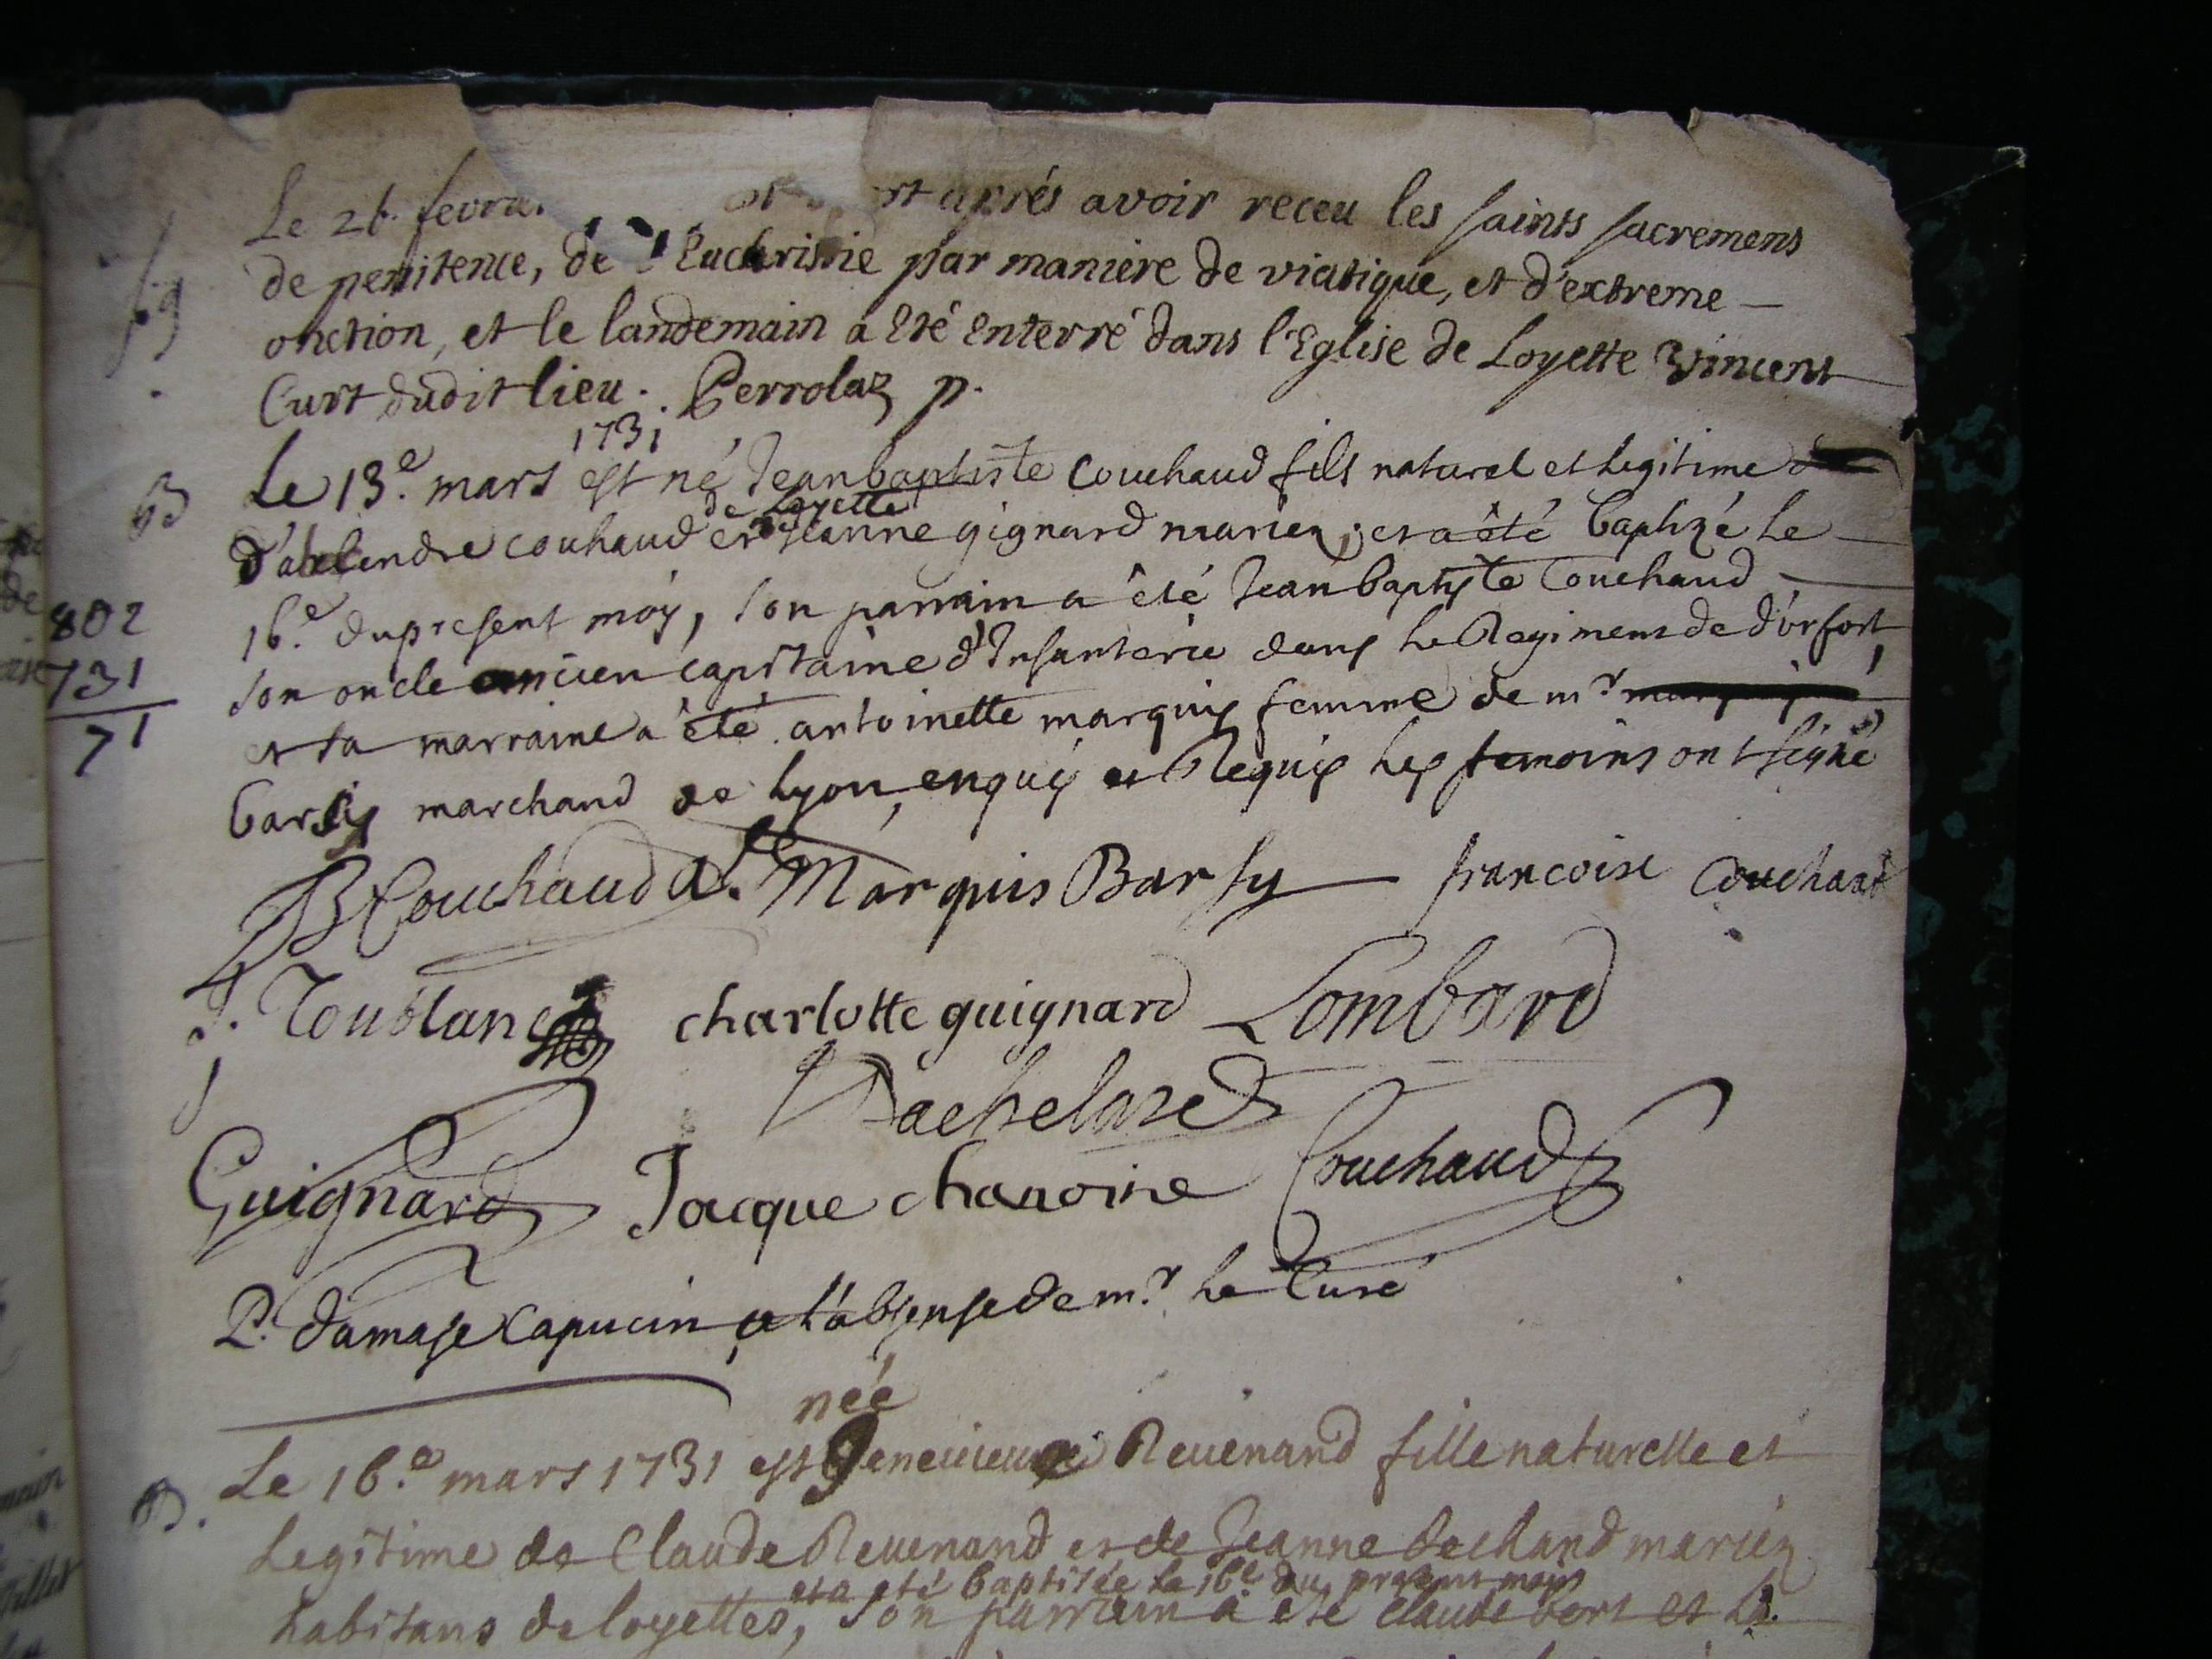 Le 26. fevrier est mort aprés avoir receu les saints sacremens
de penitence, de l'Eucharistie par maniere de viatique, et d'extreme
onction, et le landemain a été enterré dans l'Eglise de Loyette Vincent
Curt dudit lieu. Perrolaz p.
1731
B Le 13.e mars est né Jean baptiste Couchaud fils naturel et legitime
de Loyette
couhaud et Jeanne gignard mariez; et a êté baptizé le
16.e du present moy, son parrain a êté Jean baptiste Couchaud
802
son oncle ancien capitaine d'Infanterie dans le Regiment de d'orfort,
731
et sa marraine a êté antoinette marquis femme de m.r
71
barsy marchand de Lyon, enquis et Requis les temoins ont signé
JB Couchaud A. Marquis Barsy francoise Couchaud
charlotte guignard Lombard
Bachelard
Guignard Jacque chanoine Couchaud
P. damase Capucin a l'absense de m.r le Curé
née
B. Le 16.e mars 1731 est genevieve Revenand fille naturelle et
Legitime de Claude Revenand et de Jeanne dechand mariez
et a eté baptisée le 16.e du present moys
habitans de loyettes, son parrain a été Claude bort et la